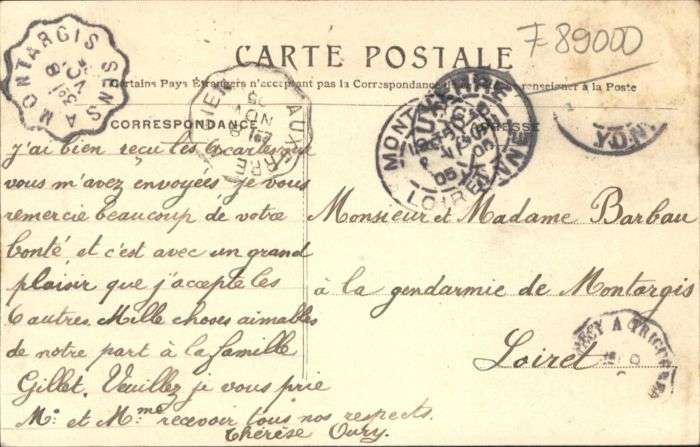 F 89000
CARTE POSTALE
Certains Pays Étrangers n'acceptant pas la Correspondance renseigner à la Poste
CORRESPONDANCE
ADRESSE
MONTARGIS A SENS
3º
8
AUXERRE
GIEN
NOV
05
MONTARGIS
LOIRET
05
AUXERRE
YONNE
j'ai bien reçu les 2 cartes que
vous m'avez envoyées je vous
remercie beaucoup de votre
bonté et c'est avec un grand
plaisir que j'accepte les
6 autres. Mille choses aimables
de notre part à la famille
Gillet. Veuillez je vous prie
Mr et Mme recevoir tous nos respects.
Thérèse Oury.
Monsieur et Madame Barbau
à la gendarmie de Montargis
Loiret
A TRIGUERES